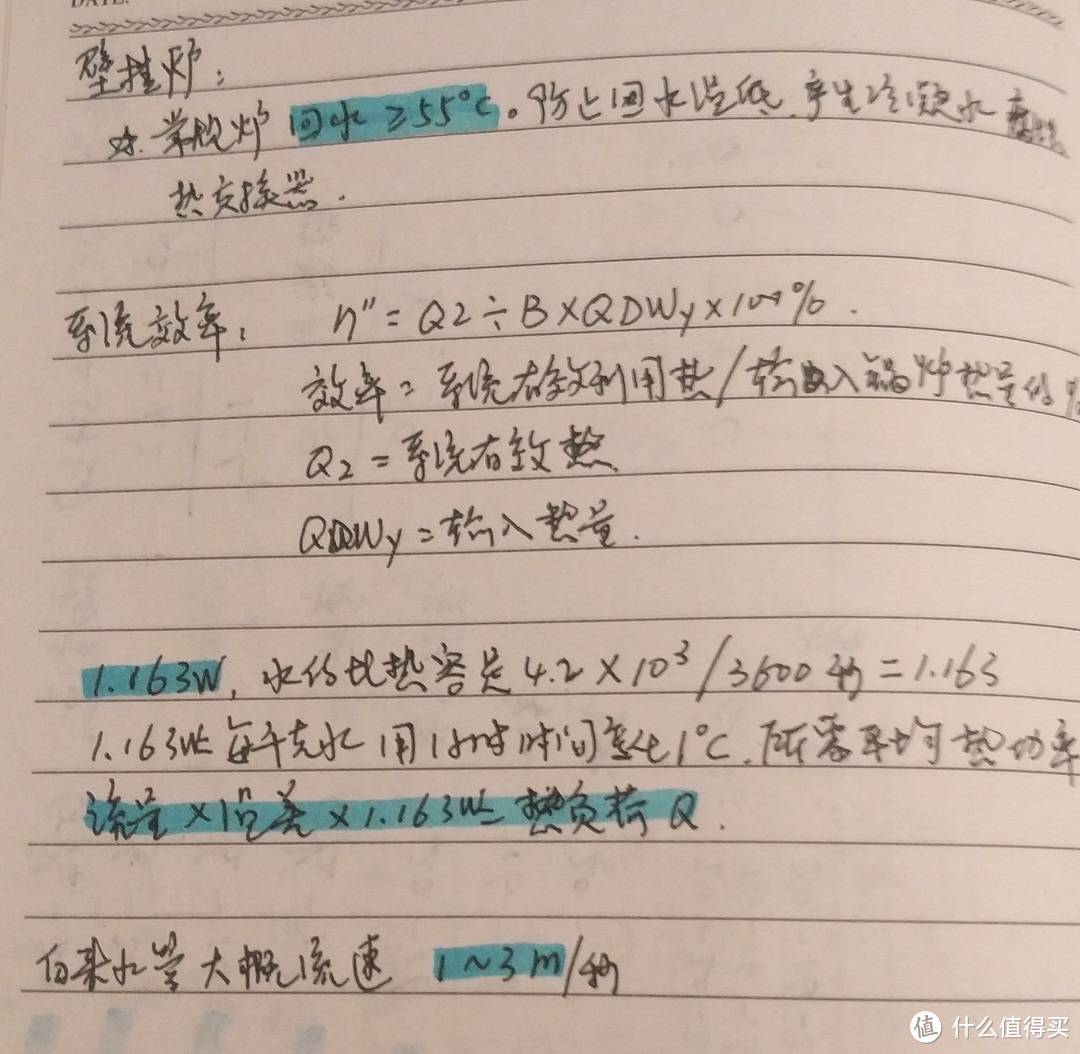 DATE:
壁挂炉:
☆. 常规炉 回水≥55°C。防止回水温低.产生冷凝水 腐蚀
热交换器.
系统效率: η"=Q2÷B×QDWy×100%.
效率=系统有效利用热/输入锅炉热量的%
Q2=系统有效热
QDWy=输入热量.
1.163W, 水的比热容是4.2×10³/3600秒=1.163
1.163W是每千克水用1小时时间变化1°C.所需平均热功率
流量×温差×1.163W是热负荷Q.
自来水管大概流速 1~3m/秒
值 什么值得买